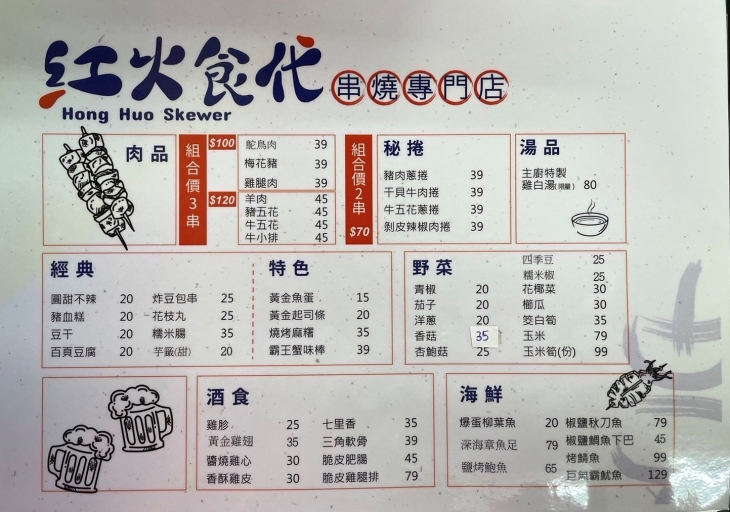 紅火食代 串燒專門店
Hong Huo Skewer
肉品
組合價3串
$100
鴕鳥肉 39
梅花豬 39
雞腿肉 39
$120
羊肉 45
豬五花 45
牛五花 45
牛小排 45
組合價2串
$70
秘捲
豬肉蔥捲 39
干貝牛肉捲 39
牛五花蔥捲 39
剝皮辣椒肉捲 39
湯品
主廚特製
雞白湯(限量) 80
經典
圓甜不辣 20 炸豆包串 25
豬血糕 20 花枝丸 25
豆干 20 糯米腸 35
百頁豆腐 20 芋籤(甜) 20
特色
黃金魚蛋 15
黃金起司條 20
燒烤麻糬 35
霸王蟹味棒 39
野菜
青椒 20
茄子 20
洋蔥 20
香菇 35
杏鮑菇 25
四季豆 25
糯米椒 25
花椰菜 30
櫛瓜 30
筊白筍 35
玉米 79
玉米筍(份) 99
酒食
雞胗 25 七里香 35
黃金雞翅 35 三角軟骨 39
醬燒雞心 30 脆皮肥腸 45
香酥雞皮 30 脆皮雞腿排 79
海鮮
爆蛋柳葉魚 20
深海章魚足 79
鹽烤鮑魚 65
椒鹽秋刀魚 79
椒鹽鯛魚下巴 45
烤鯖魚 99
巨無霸魷魚 129